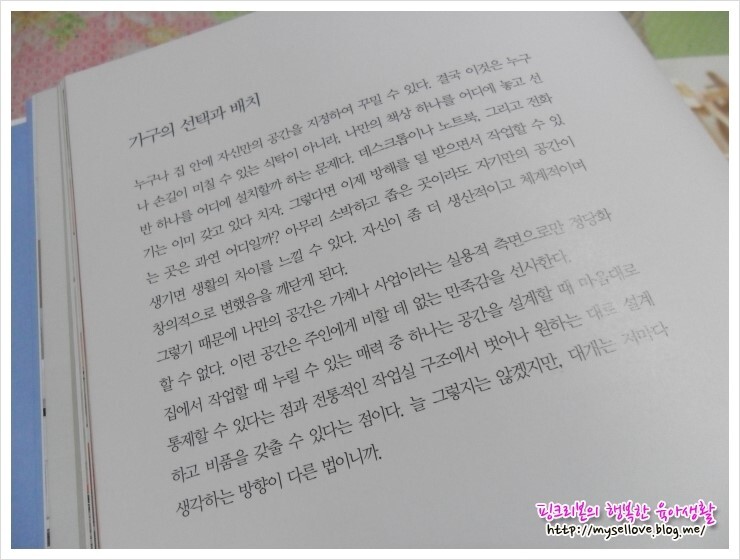 가구의 선택과 배치
누구나 집 안에 자신만의 공간을 지정하여 꾸밀 수 있다. 결국 이것은 누구
나 손길이 미칠 수 있는 식탁이 아니라, 나만의 책상 하나를 어디에 놓고 선
반 하나를 어디에 설치할까 하는 문제다. 데스크톱이나 노트북, 그리고 전화
기는 이미 갖고 있다 치자. 그렇다면 이제 방해를 덜 받으면서 작업할 수 있
는 곳은 과연 어디일까? 아무리 소박하고 좁은 곳이라도 자기만의 공간이
생기면 생활의 차이를 느낄 수 있다. 자신이 좀 더 생산적이고 체계적이며
창의적으로 변했음을 깨닫게 된다.
그렇기 때문에 나만의 공간은 가계나 사업이라는 실용적 측면으로만 정당화
할 수 없다. 이런 공간은 주인에게 비할 데 없는 만족감을 선사한다.
집에서 작업할 때 누릴 수 있는 매력 중 하나는 공간을 설계할 때 마음대로
통제할 수 있다는 점과 전통적인 작업실 구조에서 벗어나 원하는 대로 설계
하고 비품을 갖출 수 있다는 점이다. 늘 그렇지는 않겠지만, 대개는 저마다
생각하는 방향이 다른 법이니까.
핑크리본의 행복한 육아생활
http://mysellove.blog.me/